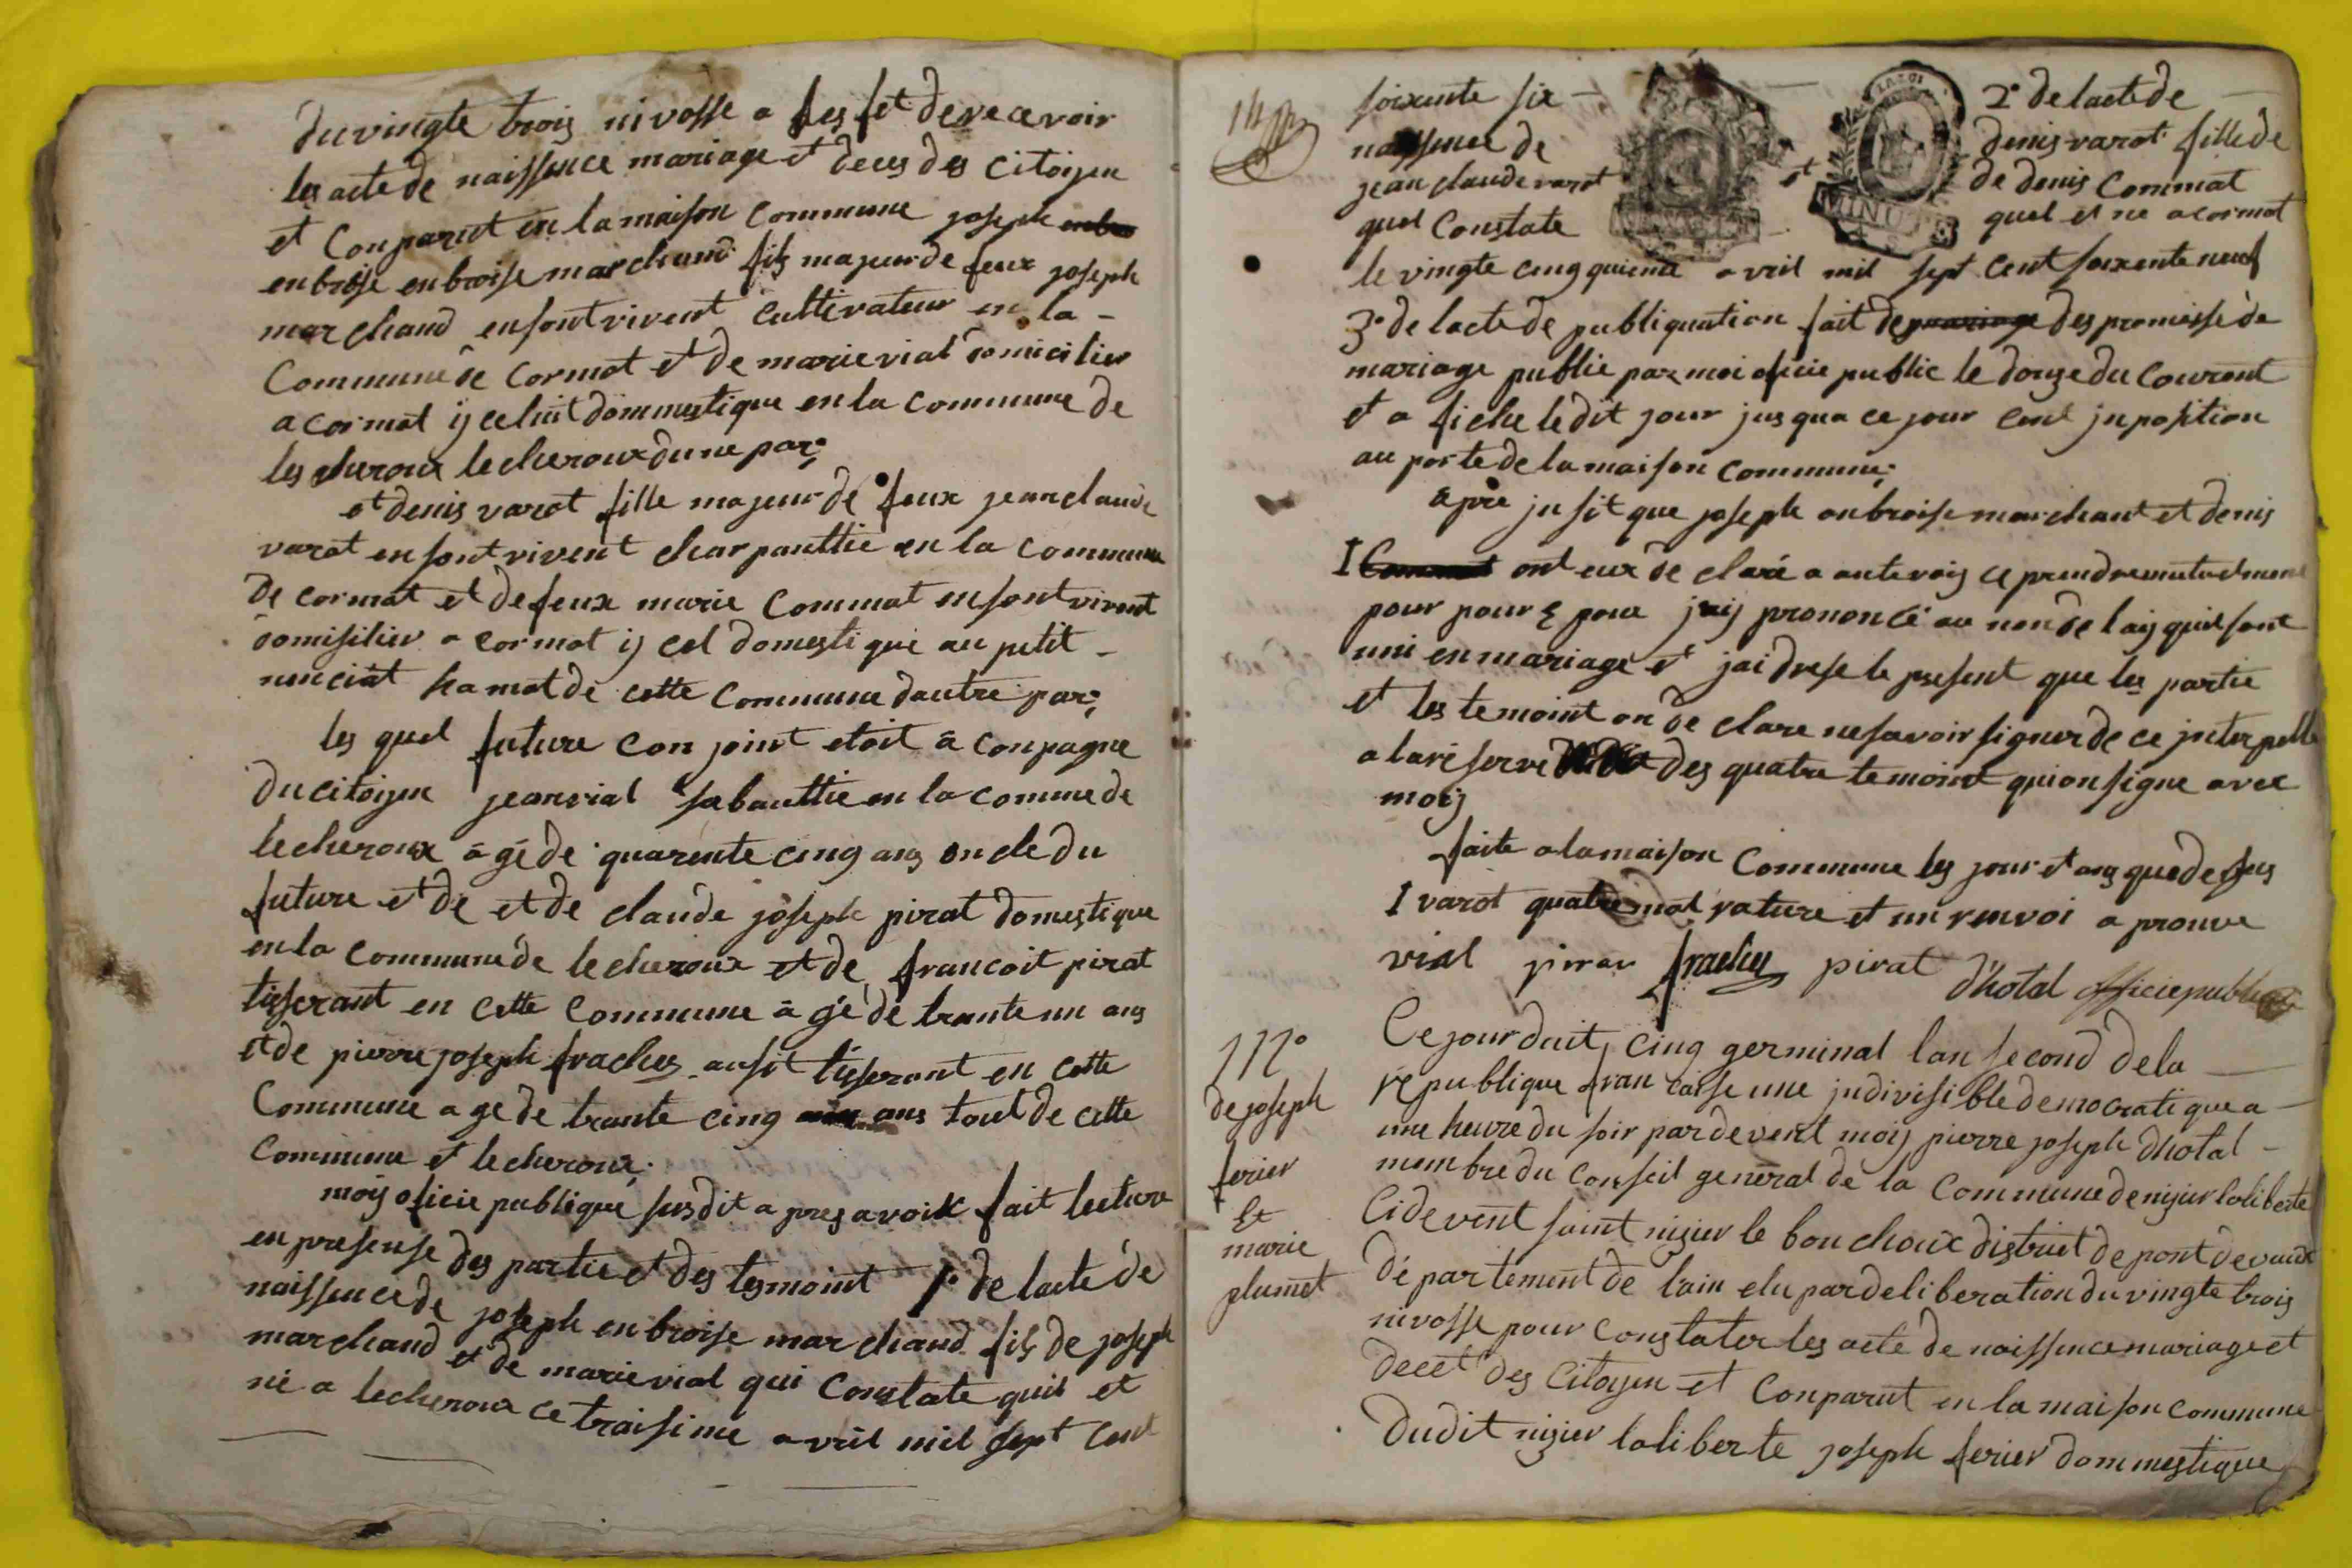 du vingte trois nivosse a ses fet de recevoir
les acte de naissence mariage et deces des citoyen
et Conparut en la maison Commune joseph
enbroise enbroise marchand fils majeur de feux joseph
marchand en sont vivent cultivateur en la -
Commune de Cormot et de marie vial domicilier
a cormot ij celuit dommestique en la commune de
les cheroux lecheroux dune par;
et denis varot fille majeur de feux jean claude
varot en sont vivent charpanttie en la commune
de cormot et de feux marie Commat en sont vivent
domisilier a cormot ij cel domestique au petit -
nonciat hamot de cette commune dautre par;
les quel future conjoint etoit a conpagne
du citoyen jean vial sabauttie en la comme de
lecheroux agé de quarente cinq ans oncle du
future et de et de claude joseph pirat domestique
en la commune de lecheroux et de francoit pirat
tisserant en cette commune a gé de trante un ans
et de pierre joseph frachey ausit tisserant en cette
Commune a ge de trante cinq ans tout de cette
Commune et lecheroux;
moij oficie publique susdit apres avoir fait lecture
en presense des partie et des tesmoint 1° de lacte de
naissence de joseph enbroise marchand fils de joseph
marchand et de marie vial qui constate quil et
né a lecheroux ce traisime avril mil sept cent
soixente six -
naissence de
jean claude varot et
quel Constate
MINUTE
2° de lacte de
denis varot fille de
de denis Commat
quel et ne a cormot
le vingte cinq quieme avril mil sept cent soixente neuf
3° de lacte de publiquation fait de mariage des promesse de
mariage publie par moi oficie public le douze du courent
et a fiche ledit jour jusqua ce jour cent jnposition
au porte de la maison commune;
apre ju sit que joseph anbroise marchant et denis
I Commat ont eux de claré a autevois ce prendre mutuelment
pour pour & poux jaij prononcé au non de laij quil sont
uni en mariage et jai drese le present que les partie
et les temoint on de clare ne savoir signer de ce jnterpelle
a la reserve des quatre temoint qui on signe avec
moij
faite a la maison Commune les jour et ans que desus
I varot quatre mot rature et un renvoi a prouve
vial pirat frachey pirat dhotal officie public
117°
de joseph
ferier
Et
marie
plumet
Ce jour duit cinq germinal lan second de la
république francaise une jndivisible democratique a
une heure du soir par devent moij pierre joseph dhotal -
membre du Conseil general de la Commune de nizier la liberte
Cidevent saint nizier le bouchoux district de pont de vaux
département de lain elu par deliberation du vingte trois
nivosse pour constater les acte de naissence mariage et
decet des citoyen et Conparut en la maison commune
dudit nizier la liberte joseph ferier dommestique